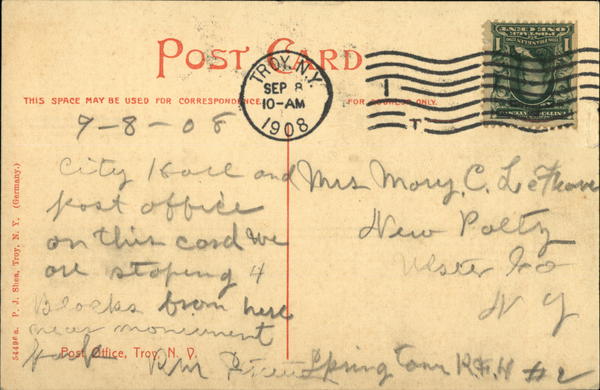 POST CARD
TROY, N.Y.
SEP 8
10-AM
1908
1
T
THIS SPACE MAY BE USED FOR CORRESPONDENCE
FOR ADDRESS ONLY.
7-8-08
City Hall and
post office
on this card we
are stoping 4
Blocks from here
near monument
Mrs Mary. C. LeFevre
New Paltz
Ulster Co
N Y
Springtown R.F.H #2
Post Office, Troy, N. Y.
54496 a. P. J. Shea, Troy, N. Y. (Germany.)